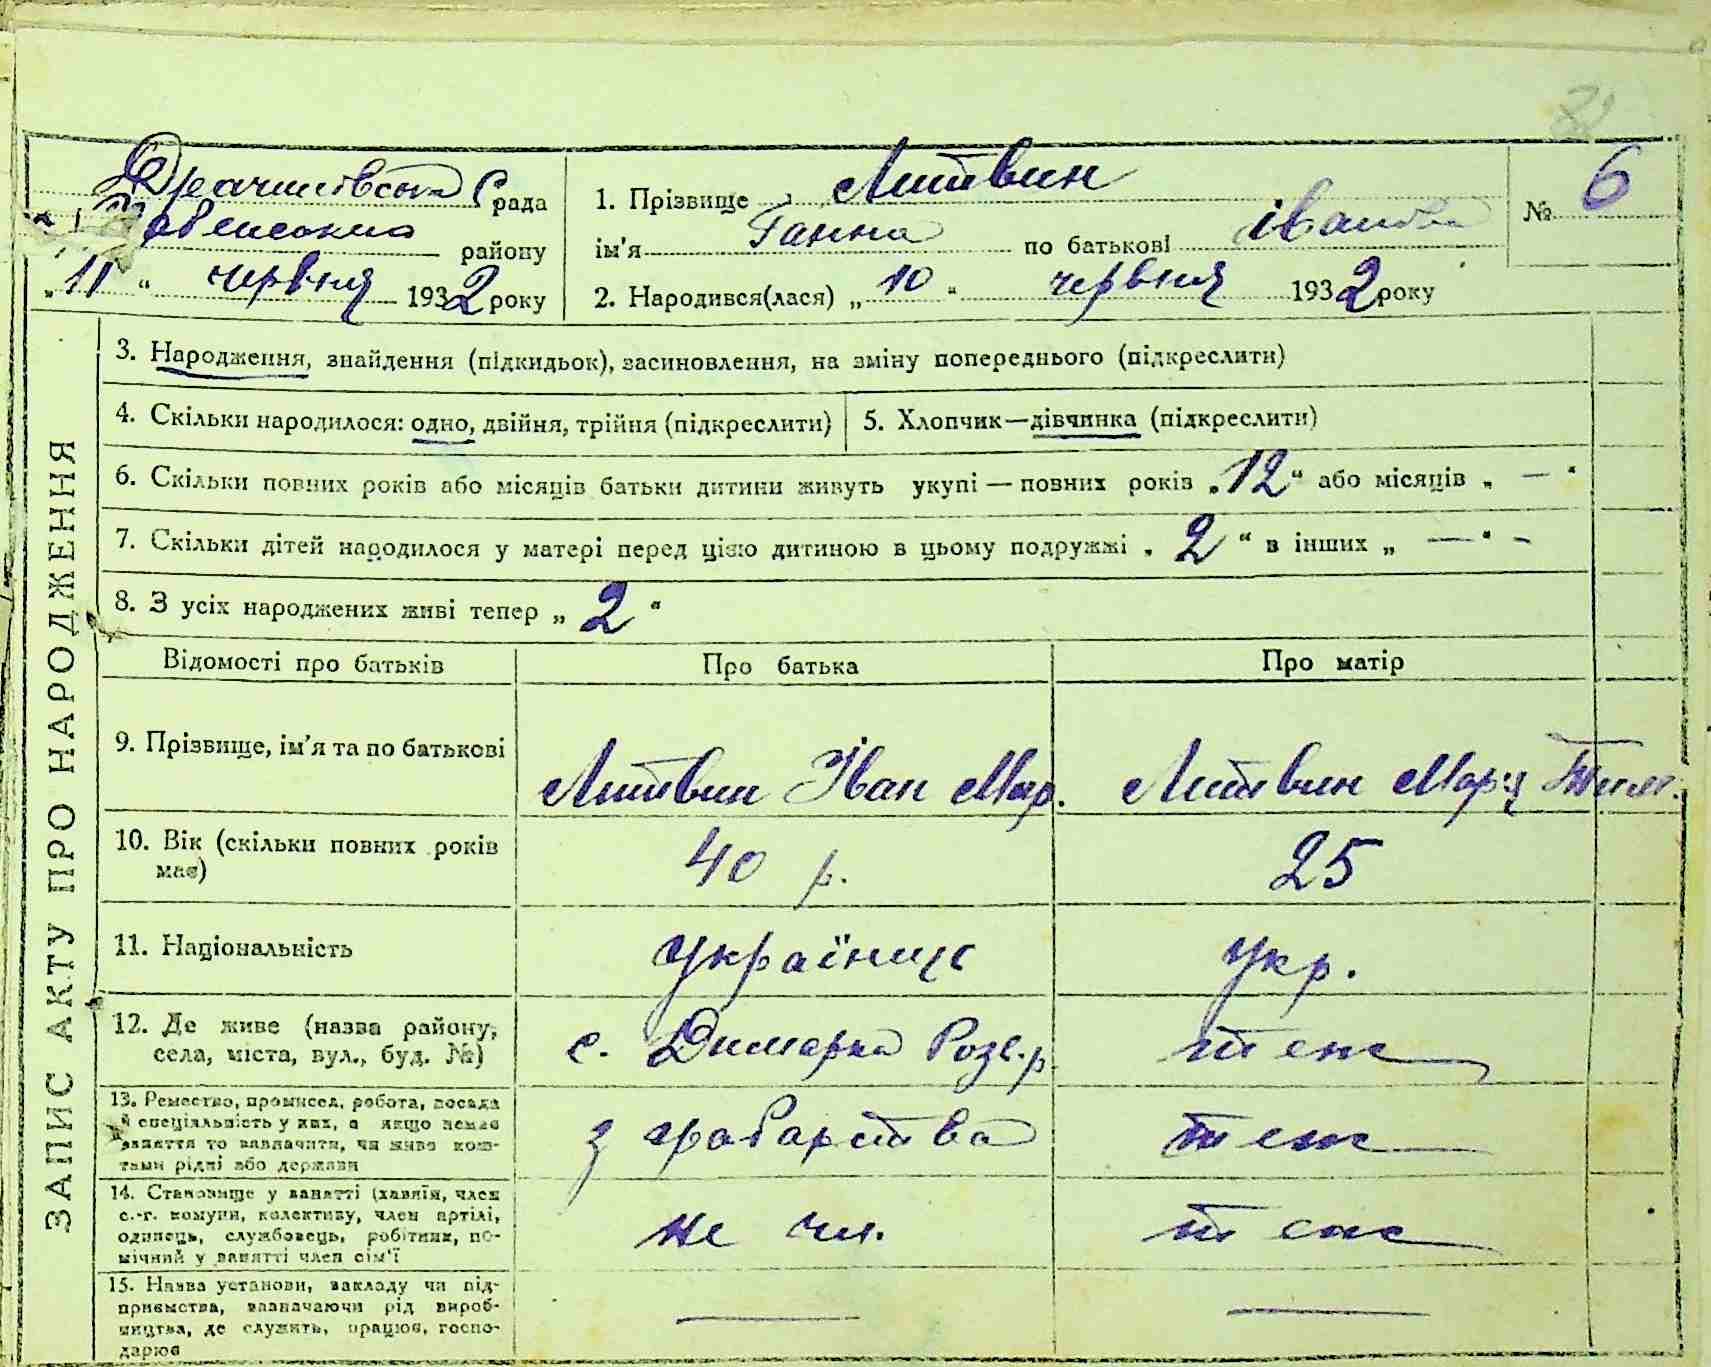 рада
району
„11“ червня 1932 року
1. Прізвище Литвин
ім'я Ганна по батькові Іванов
2. Народився(лася) „10“ червня 1932 року
№ 6
ЗАПИС АКТУ ПРО НАРОДЖЕННЯ
3. Народження, знайдення (підкидьок), засиновлення, на зміну попереднього (підкреслити)
4. Скільки народилося: одно, двійня, трійня (підкреслити)
5. Хлопчик—дівчинка (підкреслити)
6. Скільки повних років або місяців батьки дитини живуть укупі — повних років „12“ або місяців „—“
7. Скільки дітей народилося у матері перед цією дитиною в цьому подружжі „2“ в інших „—“ -
8. З усіх народжених живі тепер „2“
Відомості про батьків Про батька Про матір
9. Прізвище, ім'я та по батькові
Литвин Іван Мар. Литвин Мар'я Тим.
10. Вік (скільки повних років
має)
40 р. 25
11. Національність українц укр.
12. Де живе (назва району,
села, міста, вул., буд. №)
с. Димарка Розв. р теж
13. Ремество, промисел, робота, посада
й спеціяльність у них, а якщо немає
заняття то зазначити, чи живе кош-
тами рідні або держави
з грабарства теж
14. Становище у занятті (хазяїн, член
с.-г. комуни, колективу, член артілі,
одинець, службовець, робітник, по-
мічний у занятті член сім'ї
не чл. теж
15. Назва установи, закладу чи під-
приємства, зазначаючи рід вироб-
ництва, де служить, працює, госпо-
дарює